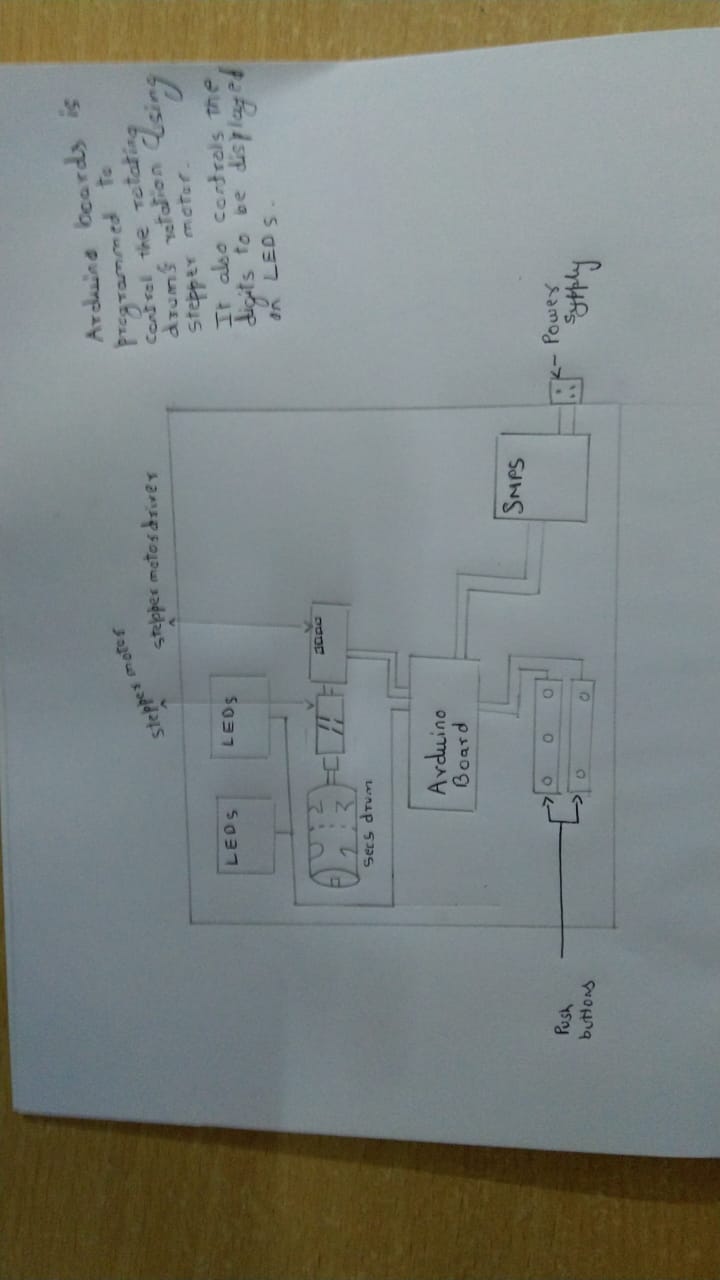 Arduino boards is
programmed to
control the rotating
drum's rotation using
stepper motor.
It also controls the
digits to be displayed
on LEDs.
stepper motor
stepper motor driver
LEDs
LEDs
secs drum
Arduino
Board
SMPS
Power
supply
Push
buttons